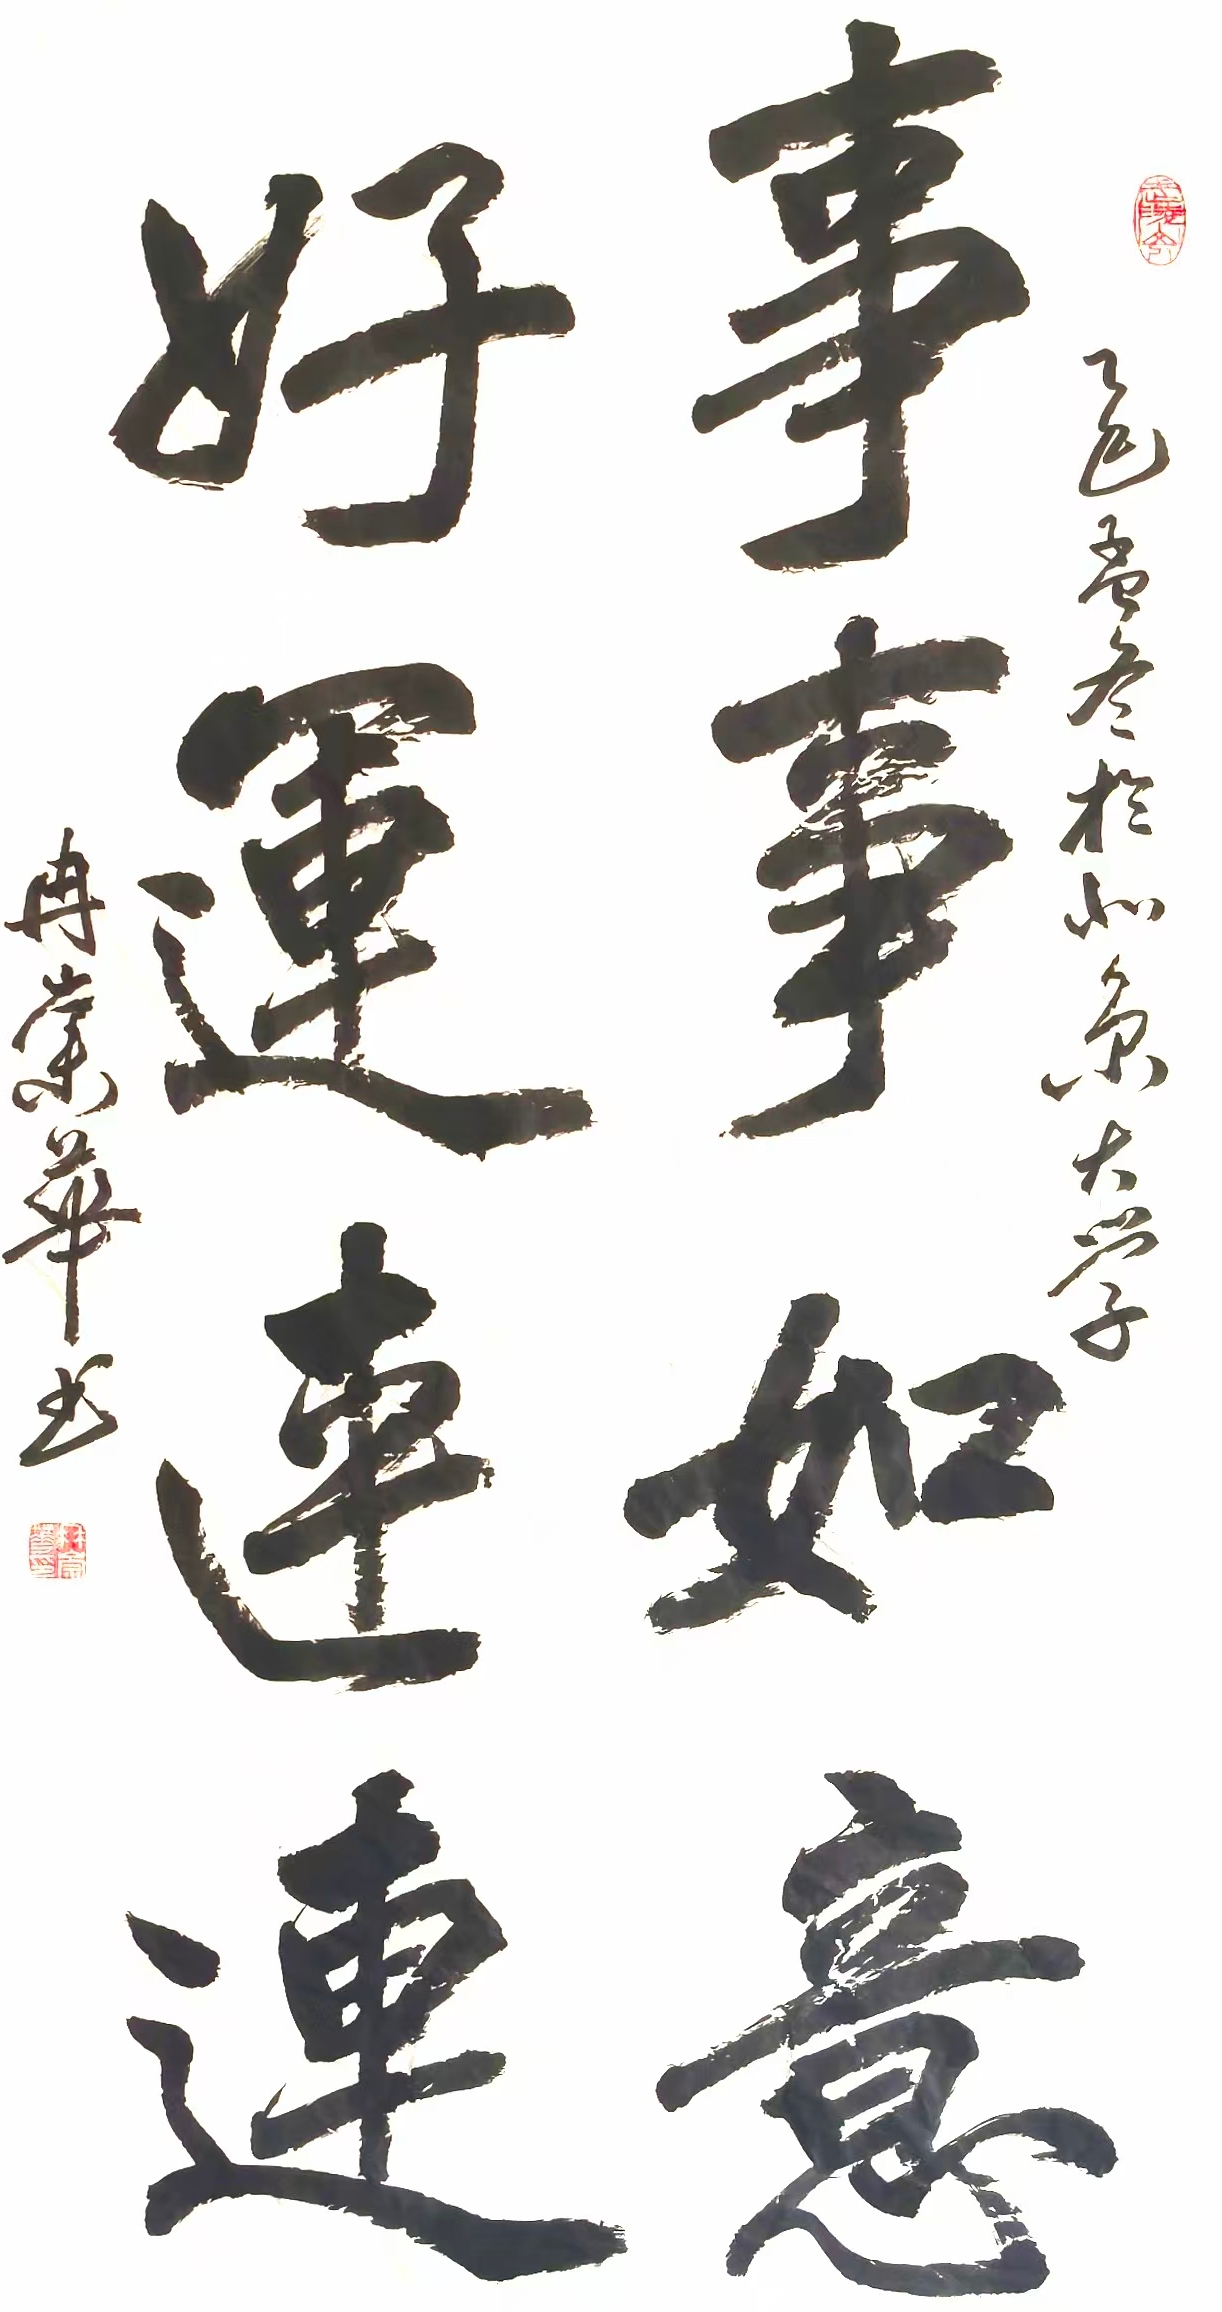 乙巳孟冬於北京大学
事事如意
好運連連
冉崇華书